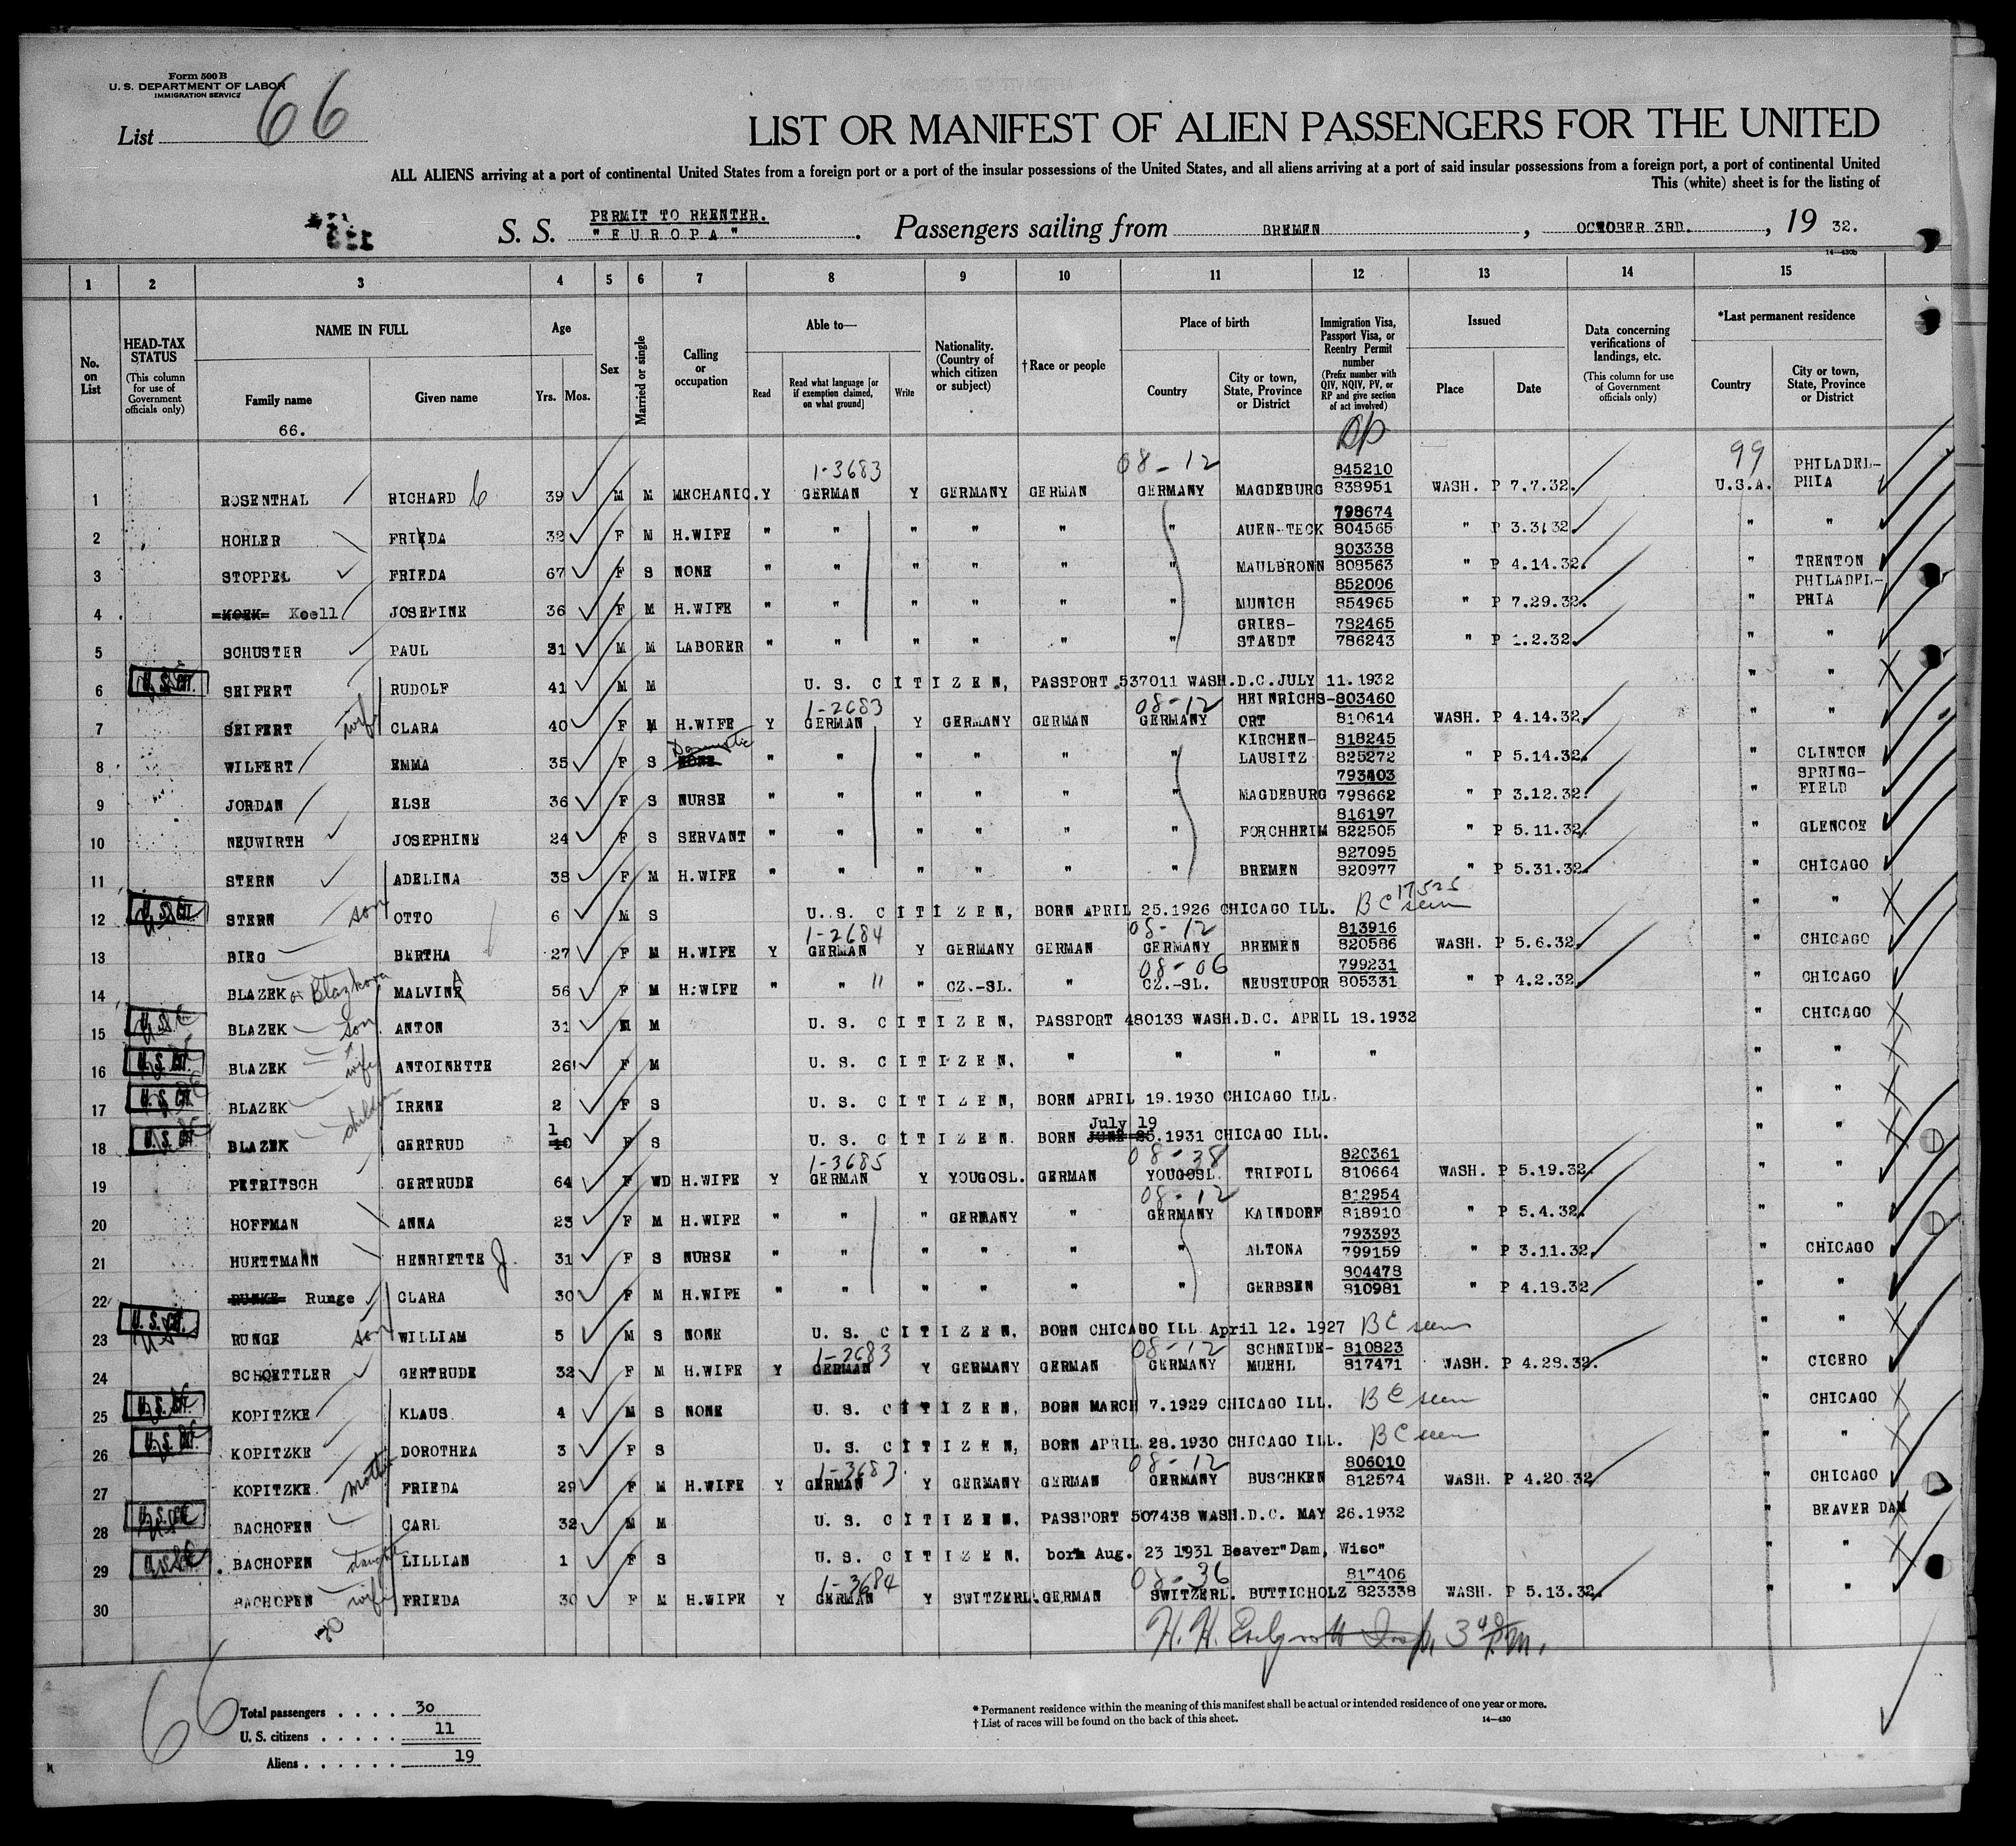 Form 500 B
U. S. DEPARTMENT OF LABOR
IMMIGRATION SERVICE
List 66
LIST OR MANIFEST OF ALIEN PASSENGERS FOR THE UNITED
ALL ALIENS arriving at a port of continental United States from a foreign port or a port of the insular possessions of the United States, and all aliens arriving at a port of said insular possessions from a foreign port, a port of continental United
This (white) sheet is for the listing of
PERMIT TO REENTER.
S. S. "EUROPA". Passengers sailing from BREMEN, OCTOBER 3RD., 19 32.
14—430b
1 2 3 4 5 6 7 8 9 10 11 12 13 14 15
No. on List
HEAD-TAX STATUS (This column for use of Government officials only)
NAME IN FULL Family name Given name
66.
Age Yrs. Mos.
Sex
Married or single
Calling or occupation
Able to— Read Read what language [or if exemption claimed, on what ground] Write
Nationality. (Country of which citizen or subject)
† Race or people
Place of birth Country City or town, State, Province or District
Immigration Visa, Passport Visa, or Reentry Permit number (Prefix number with QIV, NQIV, PV, or RP and give section of act involved)
Issued Place Date
Data concerning verifications of landings, etc. (This column for use of Government officials only)
*Last permanent residence Country City or town, State, Province or District
1-3683 08-12 845210 99 PHILADEL-
1 ROSENTHAL RICHARD 39 M M MECHANIC. Y GERMAN Y GERMANY GERMAN GERMANY MAGDEBURG 838951 WASH. P 7.7.32. U.S.A. PHIA
798674
2 HOHLER FRIEDA 32 F M H.WIFE " " " " " " AUEN-TECK 804565 " P 3.3132. " "
803338
3 STOPPEL FRIEDA 67 F S NONE " " " " " " MAULBRONN 808563 " P 4.14.32. " TRENTON
852006 PHILADEL-
4 KOEK Koell JOSEFINE 36 F M H.WIFE " " " " " " MUNICH 854965 " P 7.29.32. " PHIA
GRIES- 782465
5 SCHUSTER PAUL 31 M M LABORER " " " " " " STAEDT 786243 " P 1.2.32. " "
6 U. S. CIT. SEIFERT RUDOLF 41 M M U. S. CITIZEN, PASSPORT 537011 WASH.D.C.JULY 11.1932 " "
1-2683 08-12 HEINRICHS- 803460
7 SEIFERT wife CLARA 40 F M H.WIFE Y GERMAN Y GERMANY GERMAN GERMANY ORT 810614 WASH. P 4.14.32. " "
Domestic KIRCHEN- 818245
8 WILFERT EMMA 35 F S NONE " " " " " " LAUSITZ 825272 " P 5.14.32. " CLINTON
793403 SPRING-
9 JORDAN ELSE 36 F S NURSE " " " " " " MAGDEBURG 798662 " P 3.12.32. " FIELD
816197
10 NEUWIRTH JOSEPHINE 24 F S SERVANT " " " " " " FORCHHEIM 822505 " P 5.11.32. " GLENCOE
827095
11 STERN ADELINA 38 F M H.WIFE " " " " " " BREMEN 820977 " P 5.31.32. " CHICAGO
12 U. S. CIT. STERN son OTTO 6 M S U. S. CITIZEN, BORN APRIL 25.1926 CHICAGO ILL. BC 17525 seen " "
1-2684 08-12 813916
13 BIRG BERTHA 27 F M H.WIFE Y GERMAN Y GERMANY GERMAN GERMANY BREMEN 820586 WASH. P 5.6.32. " CHICAGO
08-06 799231
14 BLAZEK or Blazkova MALVINA 56 F M H.WIFE " " " CZ.-SL. " CZ.-SL. NEUSTUPOR 805331 " P 4.2.32. " CHICAGO
15 BLAZEK son ANTON 31 M M U. S. CITIZEN, PASSPORT 480138 WASH.D.C. APRIL 18.1932 " CHICAGO
16 U. S. CIT. BLAZEK wife ANTOINETTE 26 F M U. S. CITIZEN, " " " " " "
17 U. S. CIT. BLAZEK children IRENE 2 F S U. S. CITIZEN, BORN APRIL 19.1930 CHICAGO ILL. " "
1 July 19
18 U. S. CIT. BLAZEK GERTRUD 10 F S U. S. CITIZEN. BORN JUNE 25.1931 CHICAGO ILL. " "
1-3685 08-38 820361
19 PETRITSCH GERTRUDE 64 F WD H.WIFE Y GERMAN Y YOUGOSL. GERMAN YOUGOSL. TRIFOIL 810664 WASH. P 5.19.32. " "
08-12 812954
20 HOFFMAN ANNA 23 F M H.WIFE " " " GERMANY " GERMANY KAINDORF 818910 " P 5.4.32. " "
793393
21 HUETTMANN HENRIETTE J. 31 F S NURSE " " " " " " ALTONA 799159 " P 3.11.32. " CHICAGO
804478
22 RUNKE Runge CLARA 30 F M H.WIFE " " " " " " GERBSEN 810981 " P 4.18.32. " "
23 U. S. CIT. RUNGE son WILLIAM 5 M S NONE U. S. CITIZEN, BORN CHICAGO ILL April 12. 1927 BC seen " "
1-2683 08-12 SCHNEIDE- 810823
24 SCHOETTLER GERTRUDE 32 F M H.WIFE Y GERMAN Y GERMANY GERMAN GERMANY MUEHL 817471 WASH. P 4.28.32. " CICERO
25 U. S. CIT. KOPITZKE KLAUS 4 M S NONE U. S. CITIZEN, BORN MARCH 7.1929 CHICAGO ILL. BC seen " CHICAGO
26 U. S. CIT. KOPITZKE DOROTHEA 3 F S U. S. CITIZEN, BORN APRIL 28.1930 CHICAGO ILL. BC seen " "
1-3683 08-12 806010
27 KOPITZKE mother FRIEDA 29 F M H.WIFE Y GERMAN Y GERMANY GERMAN GERMANY BUSCHKEN 812574 WASH. P 4.20.32. " CHICAGO
28 U. S. CIT. BACHOFEN CARL 32 M M U. S. CITIZEN, PASSPORT 507438 WASH.D.C. MAY 26.1932 " BEAVER DAM
29 BACHOFEN daughter LILLIAN 1 F S U. S. CITIZEN, born Aug. 23 1931 Beaver"Dam, Wisc" " "
1-3684 08-36 817406
30 BACHOFEN wife FRIEDA 30 F M H.WIFE Y GERMAN Y SWITZERL. GERMAN SWITZERL. BUTTICHOLZ 823338 WASH. P 5.13.32. " "
30
66
Total passengers . . . . 30
U. S. citizens . . . . . 11
Aliens . . . . . . 19
* Permanent residence within the meaning of this manifest shall be actual or intended residence of one year or more.
† List of races will be found on the back of this sheet.
14—430